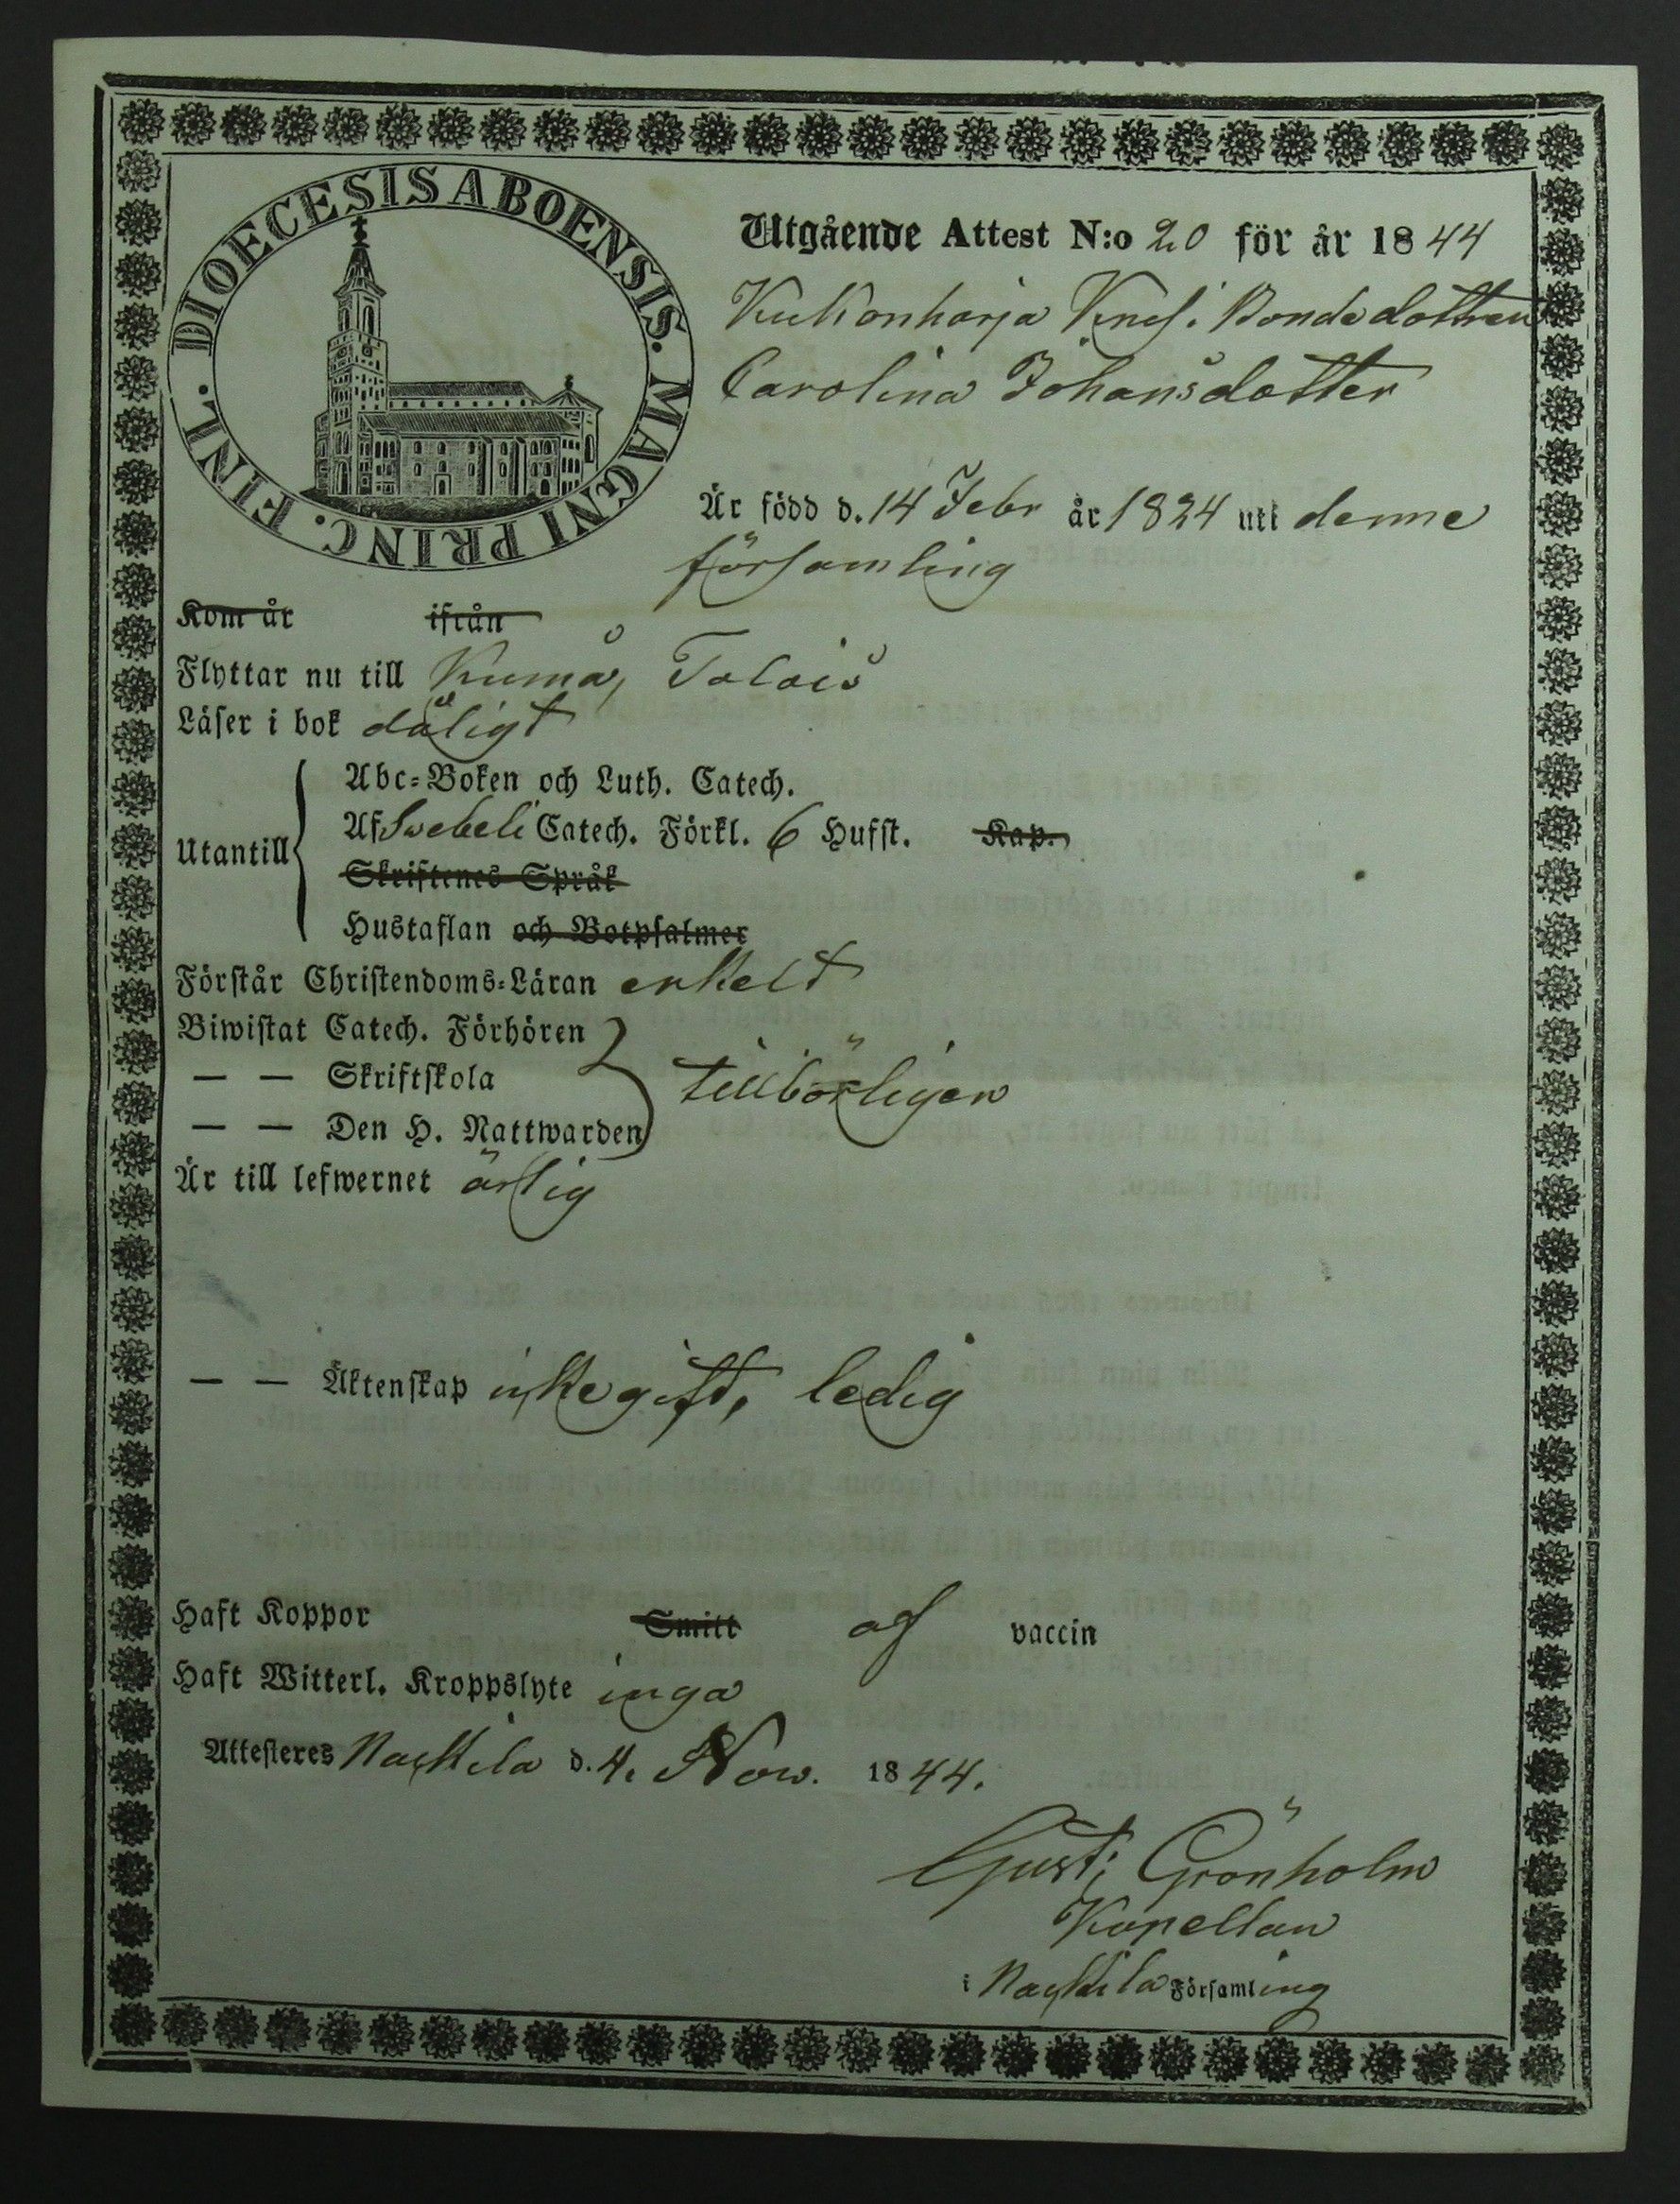 DIOECESIS ABOENSIS. MAGNI PRINC. FINL.
Utgående Attest N:o 20 för år 1844
Kukonharja Knuf. Bondedottren
Carolina Johansdotter
Är född d. 14 Febr år 1824 uti denne
församling
Kom år ifrån
Flyttar nu till Kumå, Talois
Läser i bok dåligt
Utantill
Abc-Boken och Luth. Catech.
Af Swebeli Catech. Förkl. 6 Hufst. Kap.
Skriftenes Språk
Hustaflan och Botpsalmer
Förstår Christendoms-Läran enkelt
Biwistat Catech. Förhören
— — Skriftskola tillbörligen
— — Den H. Nattwarden
Är till lefwernet ärlig
— — Äktenskap icke gift, ledig
Haft Koppor Smitt af vaccin
Haft Witterl. Kroppslyte inga
Attesteres Nackila d. 4. Nov. 1844.
Gust: Grönholm
Kapellan
i Nackila Församling